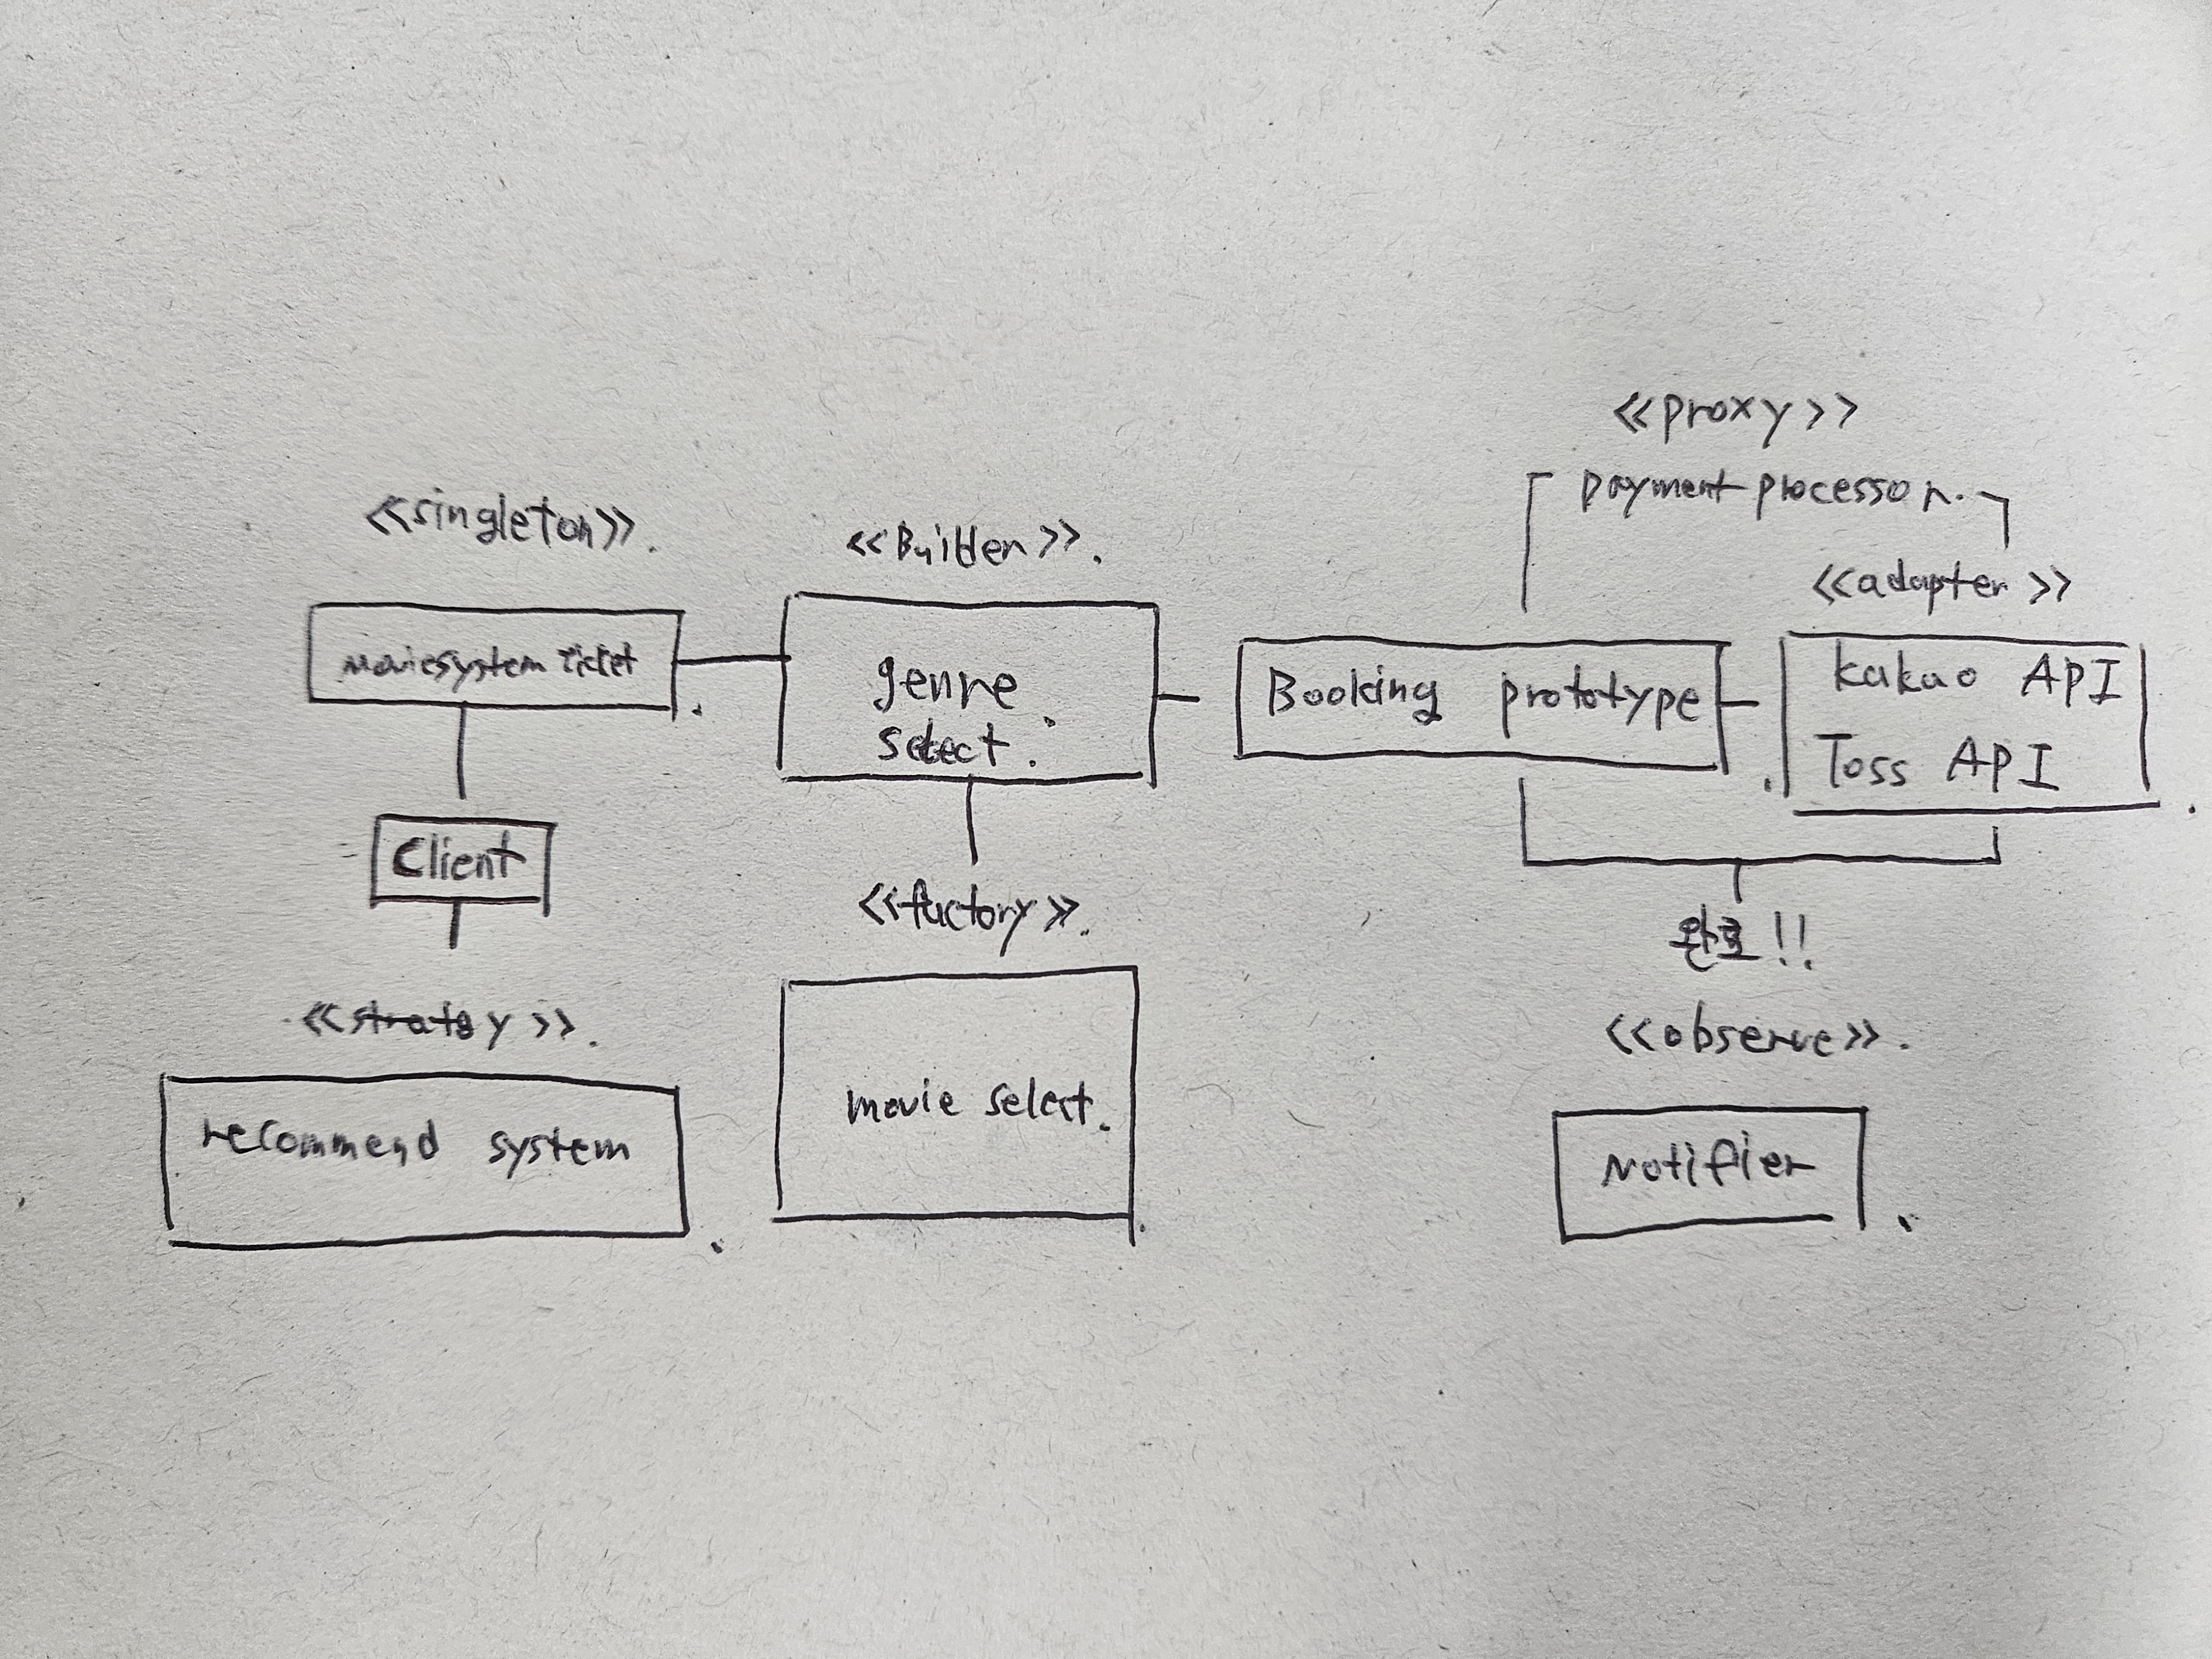 <<singleton>>.
moviesystem ticket
Client
<<strategy>>.
recommend system
<<Builder>>.
genre
select.
<<factory>>.
movie select.
<<proxy>>
payment processor.
Booking prototype
<<adapter>>
kakao API
Toss API
완료!!
<<observe>>.
Notifier